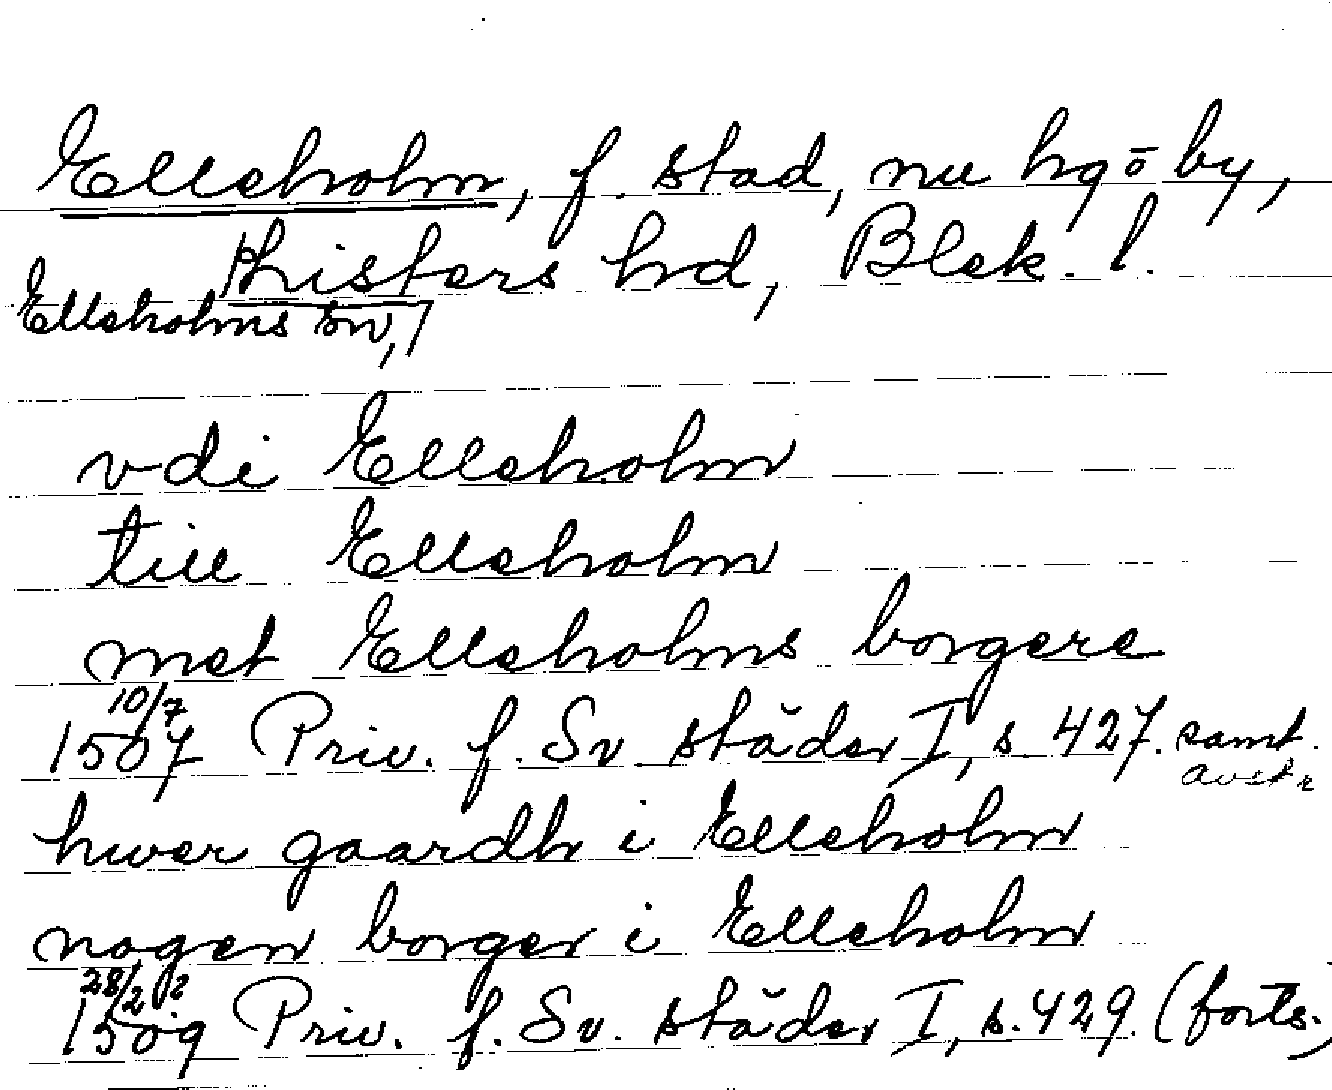 Elleholm, f. stad, nu hgō by,
Listers hd, Blek. l.
Elleholms sn,
vdi Elleholm
till Elleholm
met Elleholms borgere
10/7
1507 Priv. f. Sv städer I, s 427. samt.
avskr
hwer gaardh i Elleholm
nogen borger i Elleholm
28/2 ?
1509 Priv. f. Sv. städer I, s. 429. (forts.)